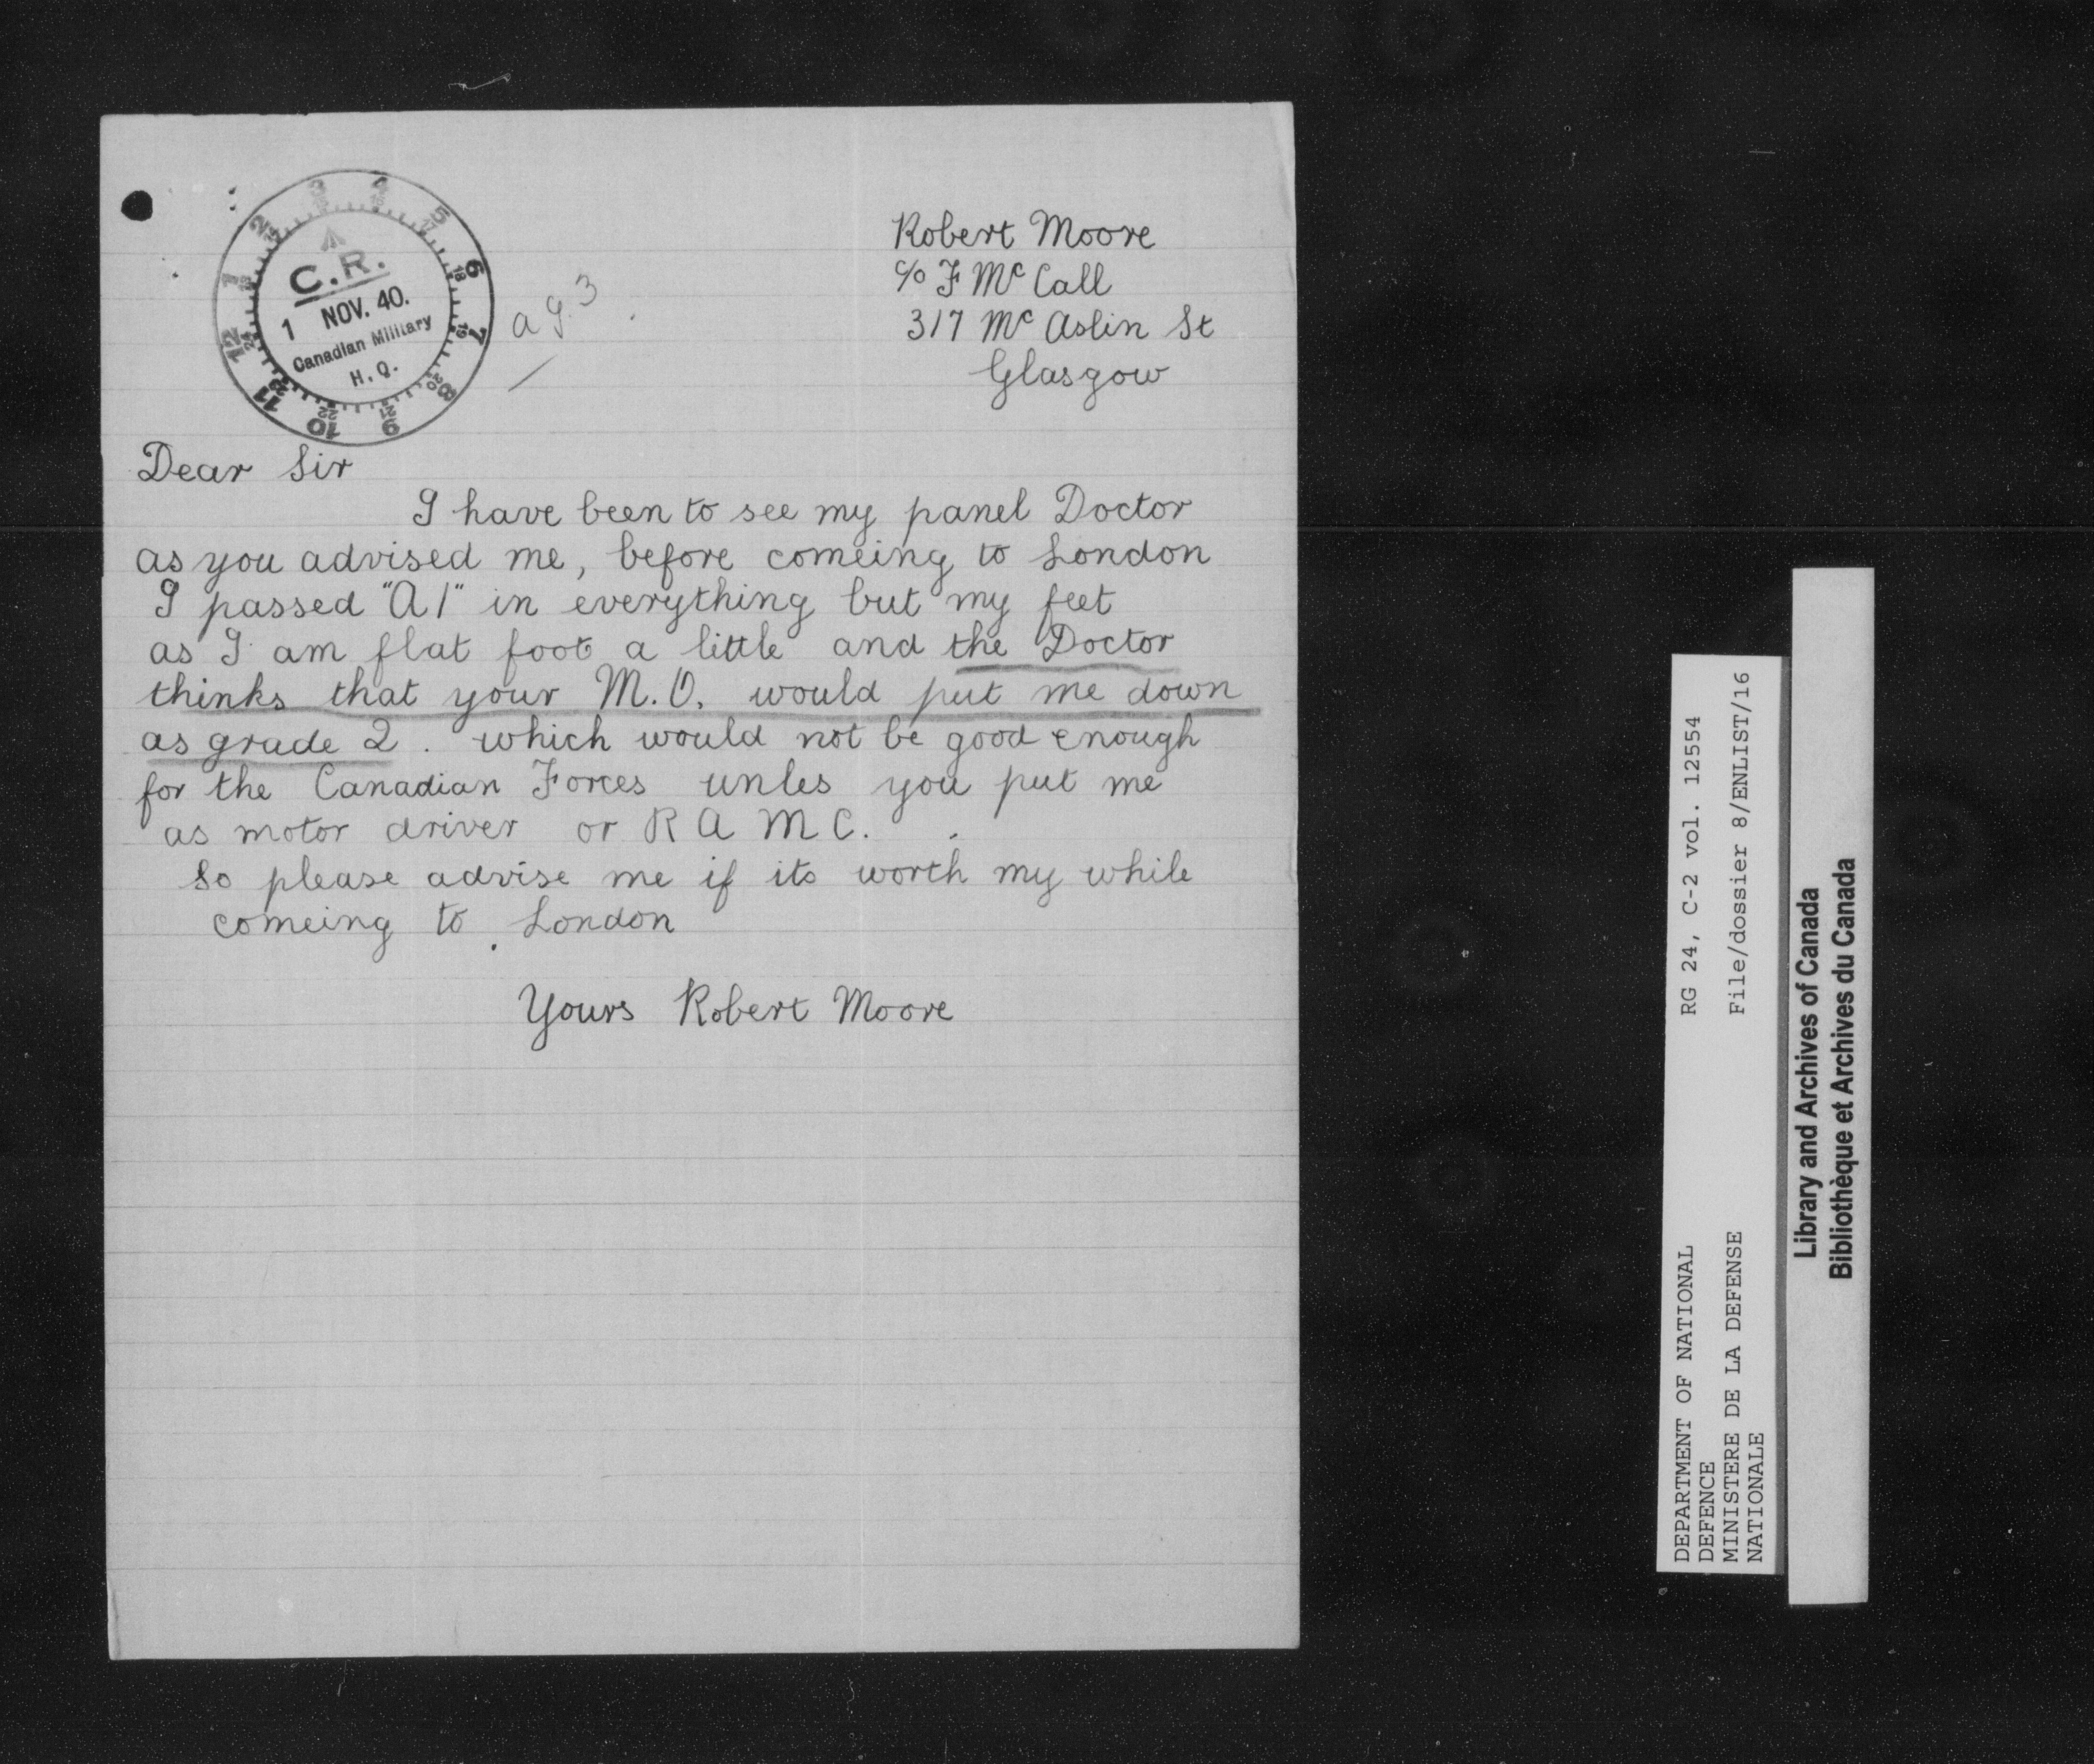 C.R.
1 NOV. 40.
Canadian Military
H.Q.
1 2 3 4 5 6 7 8 9 10 11 12
18 19 20 21 22 23 24
a g 3
Robert Moore
c/o F Mc Call
317 Mc Aslin St
Glasgow
Dear Sir
I have been to see my panel Doctor
as you advised me, before comeing to London
I passed "A1" in everything but my feet
as I am flat foot a little and the Doctor
thinks that your M.O. would put me down
as grade 2. which would not be good enough
for the Canadian Forces unles you put me
as motor driver or R A M C.
So please advise me if its worth my while
comeing to London
Yours Robert Moore
DEPARTMENT OF NATIONAL RG 24, C-2 vol. 12554
DEFENCE
MINISTERE DE LA DEFENSE File/dossier 8/ENLIST/16
NATIONALE
Library and Archives of Canada
Bibliothèque et Archives du Canada